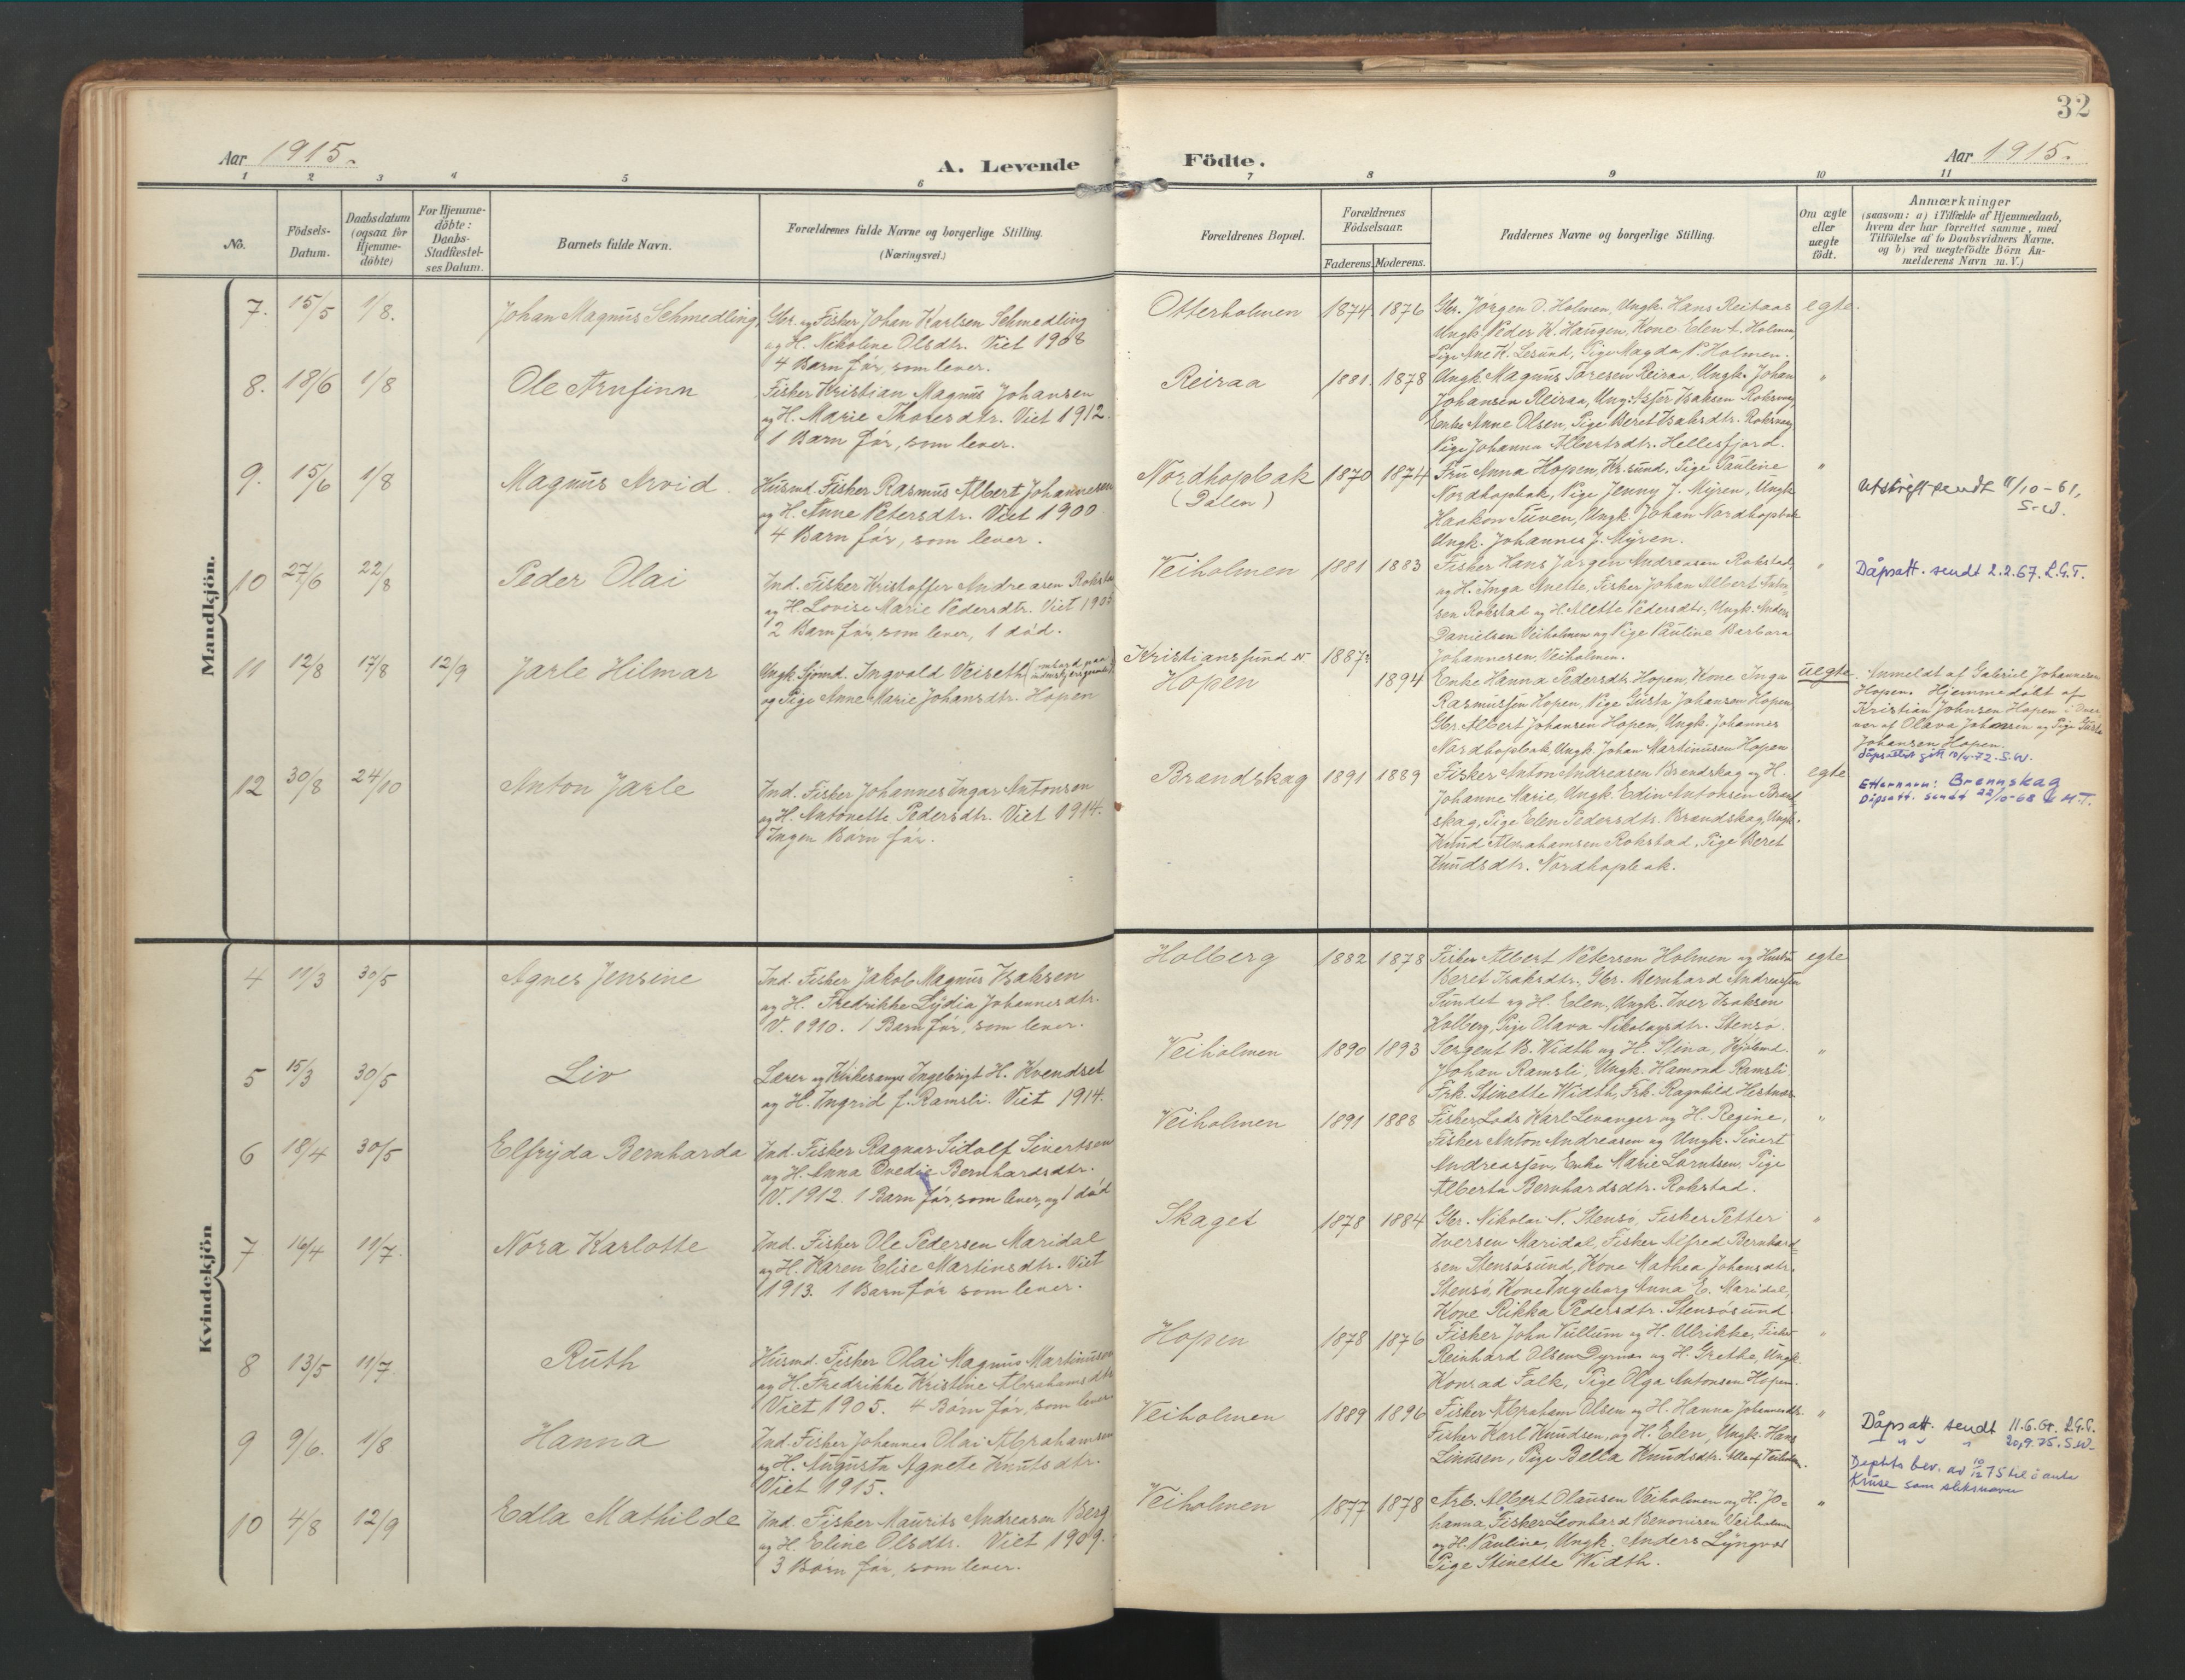 32
Aar 1915.
A. Levende Födte.
Aar 1915.
1 2 3 4 5 6 7 8 9 10 11
No.
Födsels-
Datum.
Daabsdatum
(ogsaa for
Hjemme-
döbte)
For Hjemme-
döbte:
Daabs-
Stadfæstel-
ses Datum.
Barnets fulde Navn.
Forældrenes fulde Navne og borgerlige Stilling.
(Næringsvei.)
Forældrenes Bopæl.
Forældrenes
Födselsaar.
Faderens. Moderens.
Faddernes Navne og borgerlige Stilling.
Om ægte
eller
uægte
födt.
Anmærkninger
(saasom: a) i Tilfælde af Hjemmedaab,
hvem der har forrettet samme, med
Tilföielse af to Daabsvidners Navne,
og b) ved uægtefödte Börn An-
melderens Navn m. V.)
Mandkjön.
7. 15/5 1/8. Johan Magnus Schmedling
Gbr. og Fisker Johan Karlsen Schmedling
og H. Nikoline Olsdtr. Viet 1908
4 Barn før, som lever.
Otterholmen 1874 1876
Gbr. Jørgen O. Holmen, Ungk. Hans Reitaas
Ungk. Peder K. Haugen, Kone Elen L. Holmen,
Pige Ane K. Lesund, Pige Magda P. Holmen.
egte.
8. 18/6 1/8 Ole Arnfinn
Fisker Kristian Magnus Johansen
og H. Marie Thoresdtr. Viet 1912.
1 Barn før, som lever.
Reiraa 1881 1878
Ungk. Magnus Toresen Reiraa, Ungk. Johan
Johansen Reiraa, Ung. Asfer Isaksen Roksvaag,
Enke Anne Olsen, Pige Beret Isaksdtr. Roksvaag
Pige Johanna Albertsdtr. Hellesfjord.
"
9. 15/6 1/8 Magnus Arvid.
Husmd. Fisker Rasmus Albert Johannesen
og H. Anne Petersdtr. Viet 1900
4 Barn før, som lever.
Nordhopbak
(Dalen)
1870 1874
Fru Anna Hopen, Kr.sund, Pige Pauline
Nordhopbak, Pige Jenny J. Myren, Ungk.
Haakon Tuven, Ungk. Johan Nordhopbak
Ungk. Johannes J. Myren.
"
Utskrift sendt 11/10-61,
S.W.
10 27/6 22/8 Peder Olai
Ind. Fisker Kristoffer Andreasen Rokstad
og H. Lovise Marie Pedersdtr. Viet 1905
2 Barn før, som lever, 1 død.
Veiholmen 1881 1883
Fisker Hans Jørgen Andreasen Rokstad,
og H. Inga Anette, Fisker Johan Albert
sen Rokstad og H. Alette Pedersdtr., Ungk. Anders
Danielsen Veiholmen og Pige Pauline Barbara
Johannesen, Veiholmen.
"
Dåpsatt. sendt 2.2.67. L.G.T.
11 12/8 17/8 12/9 Jarle Hilmar
Ungk. Sjømd. Ingvald Veiseth
og Pige Anne Marie Johansdtr. Hopen
Kristiansund N
Hopen
1887
1894
Enke Hanna Pedersdtr. Hopen, Kone Inga
Rasmussen Hopen, Pige Gusta Johansen Hopen
Gbr. Albert Johansen Hopen, Ungk. Johannes
Nordhopbak, Ungk. Johan Martinusen Hopen
uegte.
Anmeldt af Gabriel Johannesen
Hopen. Hjemmedøbt af
Kristian Johnsen Hopen i Over
vær af Olava Johansen og Pige Gusta
Johansen Hopen.
dåpsattest gitt 10/4-72. S.W.
12 30/8 24/10 Anton Jarle
Ind. Fisker Johannes Ingar Antonsen
og H. Antonette Pedersdtr. Viet 1914.
Ingen Børn før.
Brændskag 1891 1889
Fisker Anton Andreasen Brændskag og H.
Johanne Marie, Ungk. Edin Antonsen Brænd-
skag, Pige Elen Pedersdtr. Brændskag, Ungk.
Knud Abrahamsen Rokstad, Pige Beret
Knudsdtr. Nordhopbak.
egte
Etternavn: Brennskag
Dåpsatt. sendt 22/10-68 M.T.
Kvindekjön
4 11/3 30/5 Agnes Jensine
Ind. Fisker Jakob Magnus Isaksen
og H. Fredrikke Lydia Johannesdtr.
V. 1910. 1 Barn før, som lever.
Holberg 1882 1878
Fisker Albert Peterson Holmen og Hustru
Beret Isaksdtr., Gbr. Bernhard Andreassen
Sundet og H. Elen, Ungk. Iver Isaksen
Holberg, Pige Olava Nikolaysdtr. Stensø.
egte
5 15/3 30/5 Liv
Lærer og Kirkesanger Ingebrigt H. Kvendset
og H. Ingrid f. Ramsli. Viet 1914.
Veiholmen 1890 1893
Sergent B. Width og H. Stina, Kjøbmd.
Johan Ramsli, Ungk. Hamond Ramsli
Frk. Stinette Width, Frk. Ragnhild Hestnæs.
"
6 18/4 30/5 Elfryda Bernharda
Ind. Fisker Ragnar Sidolf Sivertsen
og H. Anna Ovedie Bernhardsdtr.
V. 1912. 1 Barn før, som lever, og 1 død
Veiholmen 1891 1888
Fisker, Lods Karl Levanger og H. Regine,
Fisker Anton Andreasen og Ungk. Sivert
Andreassen, Enke Marie Lorntsen, Pige
Alberta Bernhardsdtr. Rokstad.
"
7 16/4 11/7. Nora Karlotte
Ind. Fisker Ole Pedersen Maridal
og H. Karen Elise Martinsdtr. Viet
1913. 1 Barn før som lever.
Skaget 1878 1884
Gbr. Nikolai N. Stensø, Fisker Petter
Iversen Maridal, Fisker Alfred Bernhard-
sen Stensøsund, Kone Mathea Johansdtr.
Stensø, Kone Ingeborg Anna E. Maridal,
Kone Rikka Pedersdtr. Stensøsund.
"
8 13/5 11/7. Ruth
Husmd. Fisker Olai Magnus Martinusen
og H. Fredrikke Kristine Abrahamsdtr
Viet 1905. 4 Børn før, som lever
Hopen 1878 1876
Fisker John Vullum og H. Ulrikke, Fisker
Reinhard Olsen Dyrnes og H. Grethe, Ungk.
Konrad Falk, Pige Olga Antonsen Hopen.
"
9 9/6. 1/8 Hanna
Ind. Fisker Johannes Olai Abrahamsen
og H. Augusta Agnete Knutsdtr.
Viet 1915.
Veiholmen 1889 1896
Fisker Abraham Olsen og H. Hanna Johannesdtr.
Fisker Karl Knudsen, og H. Elen, Ungk. Hans
Linusen, Pige Bella Knudsdtr. alle af Veiholm.
"
Dåpsatt. sendt 11.6.65. L.G.T.
" " " 20/9.75. S.W.
Depts bev. av 10/12 75 til å anta
Kruse som slektsnavn
10 4/8 12/9 Edla Mathilde
Ind. Fisker Maurits Andreasen Berg
og H. Eline Olsdtr. Viet 1909.
3 Børn før, som lever.
Veiholmen 1877 1878
Arb. Albert Olausen Veiholmen og H. Jo-
hanna, Fisker Leonhard Benonisen Veiholmen
og H. Pauline, Ungk. Anders Lyngvær
Pige Stinette Width.
"